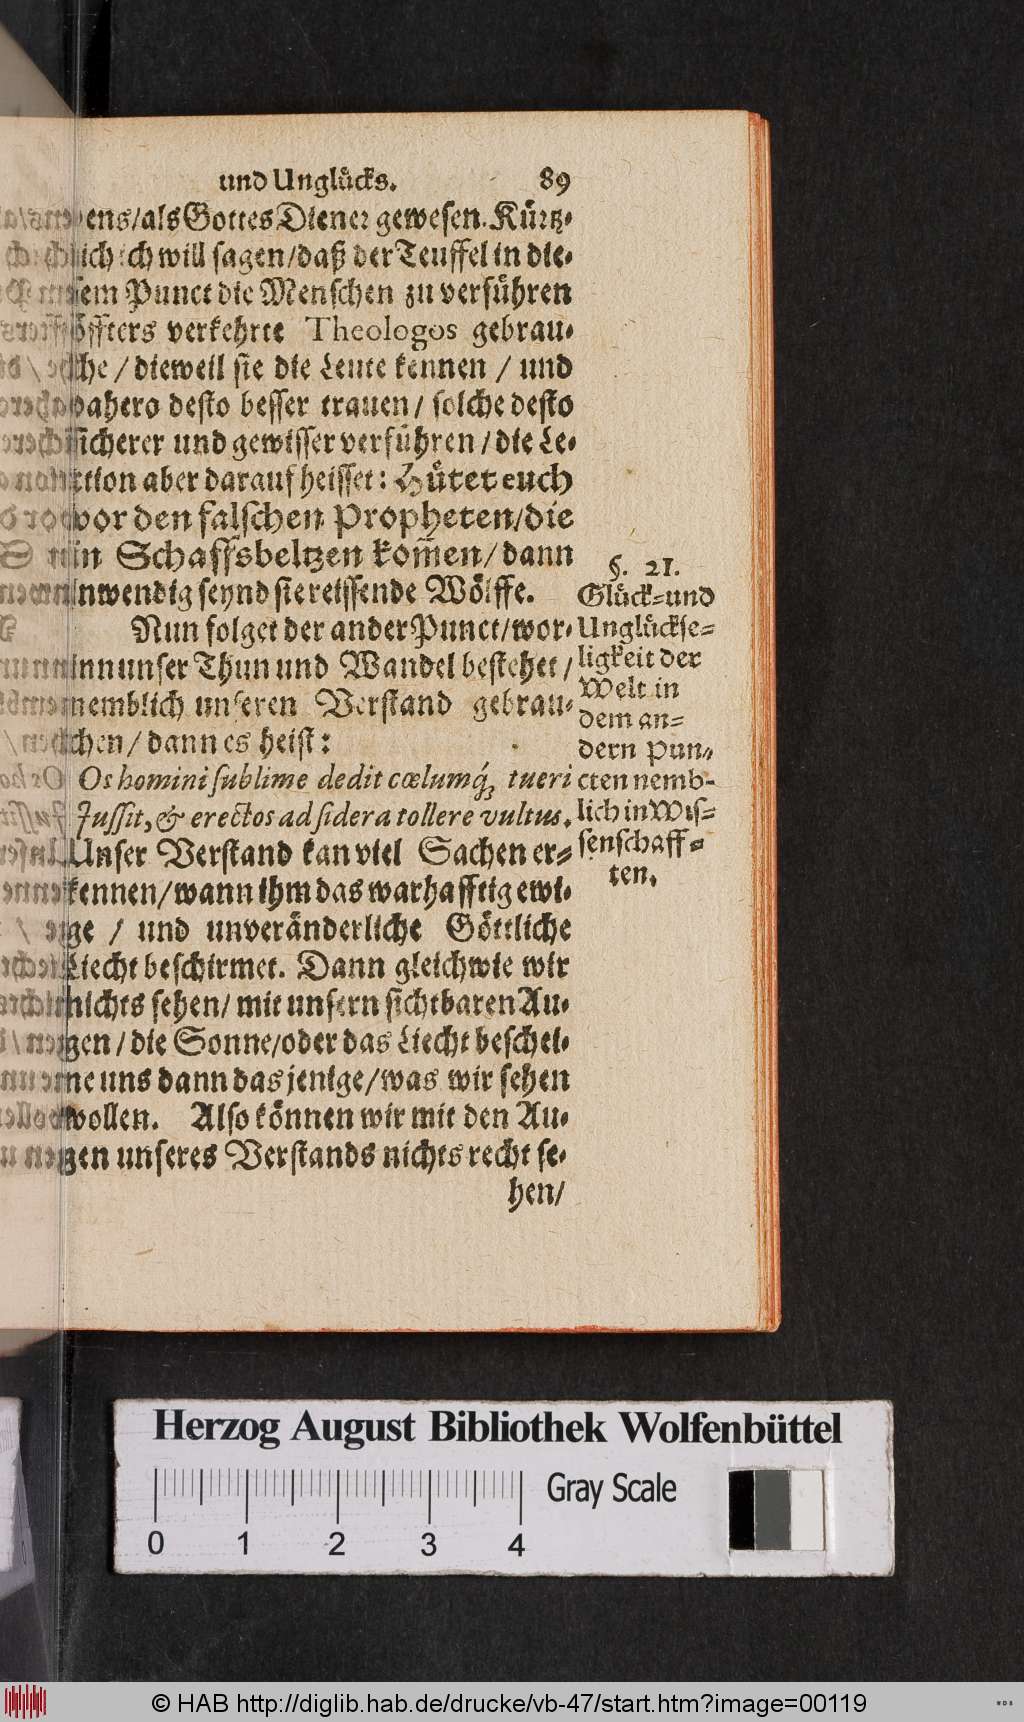 und Unglücks. 89
ens/als Gottes Diener gewesen. Kürtz-
lich ich will sagen/daß der Teuffel in die-
sem Punct die Menschen zu verführen
öffters verkehrte Theologos gebrau-
che / dieweil sie die Leute kennen / und
dahero desto besser trauen / solche desto
sicherer und gewisser verführen / die Le-
ction aber darauf heisset: Hütet euch
vor den falschen Propheten/die
in Schaffsbeltzen kom̃en/dann
inwendig seynd sie reissende Wölffe.
Nun folget der ander Punct/wor-
inn unser Thun und Wandel bestehet /
nemblich unseren Verstand gebrau-
chen / dann es heist:
Os homini sublime dedit cœlumq́; tueri
Jussit, & erectos ad sidera tollere vultus.
Unser Verstand kan viel Sachen er-
kennen/wann ihm das warhafftig ewi-
ge / und unveränderliche Göttliche
Liecht beschirmet. Dann gleichwie wir
nichts sehen/ mit unsern sichtbaren Au-
gen / die Sonne/oder das Liecht beschei-
ne uns dann dasjenige/was wir sehen
wollen. Also können wir mit den Au-
gen unseres Verstands nichts recht se-
hen/
§. 21.
Glück- und
Unglückse-
ligkeit der
Welt in
dem an-
dern Pun-
cten nemb-
lich in Wis-
senschaff-
ten.
Herzog August Bibliothek Wolfenbüttel
Gray Scale
0 1 2 3 4
© HAB http://diglib.hab.de/drucke/vb-47/start.htm?image=00119